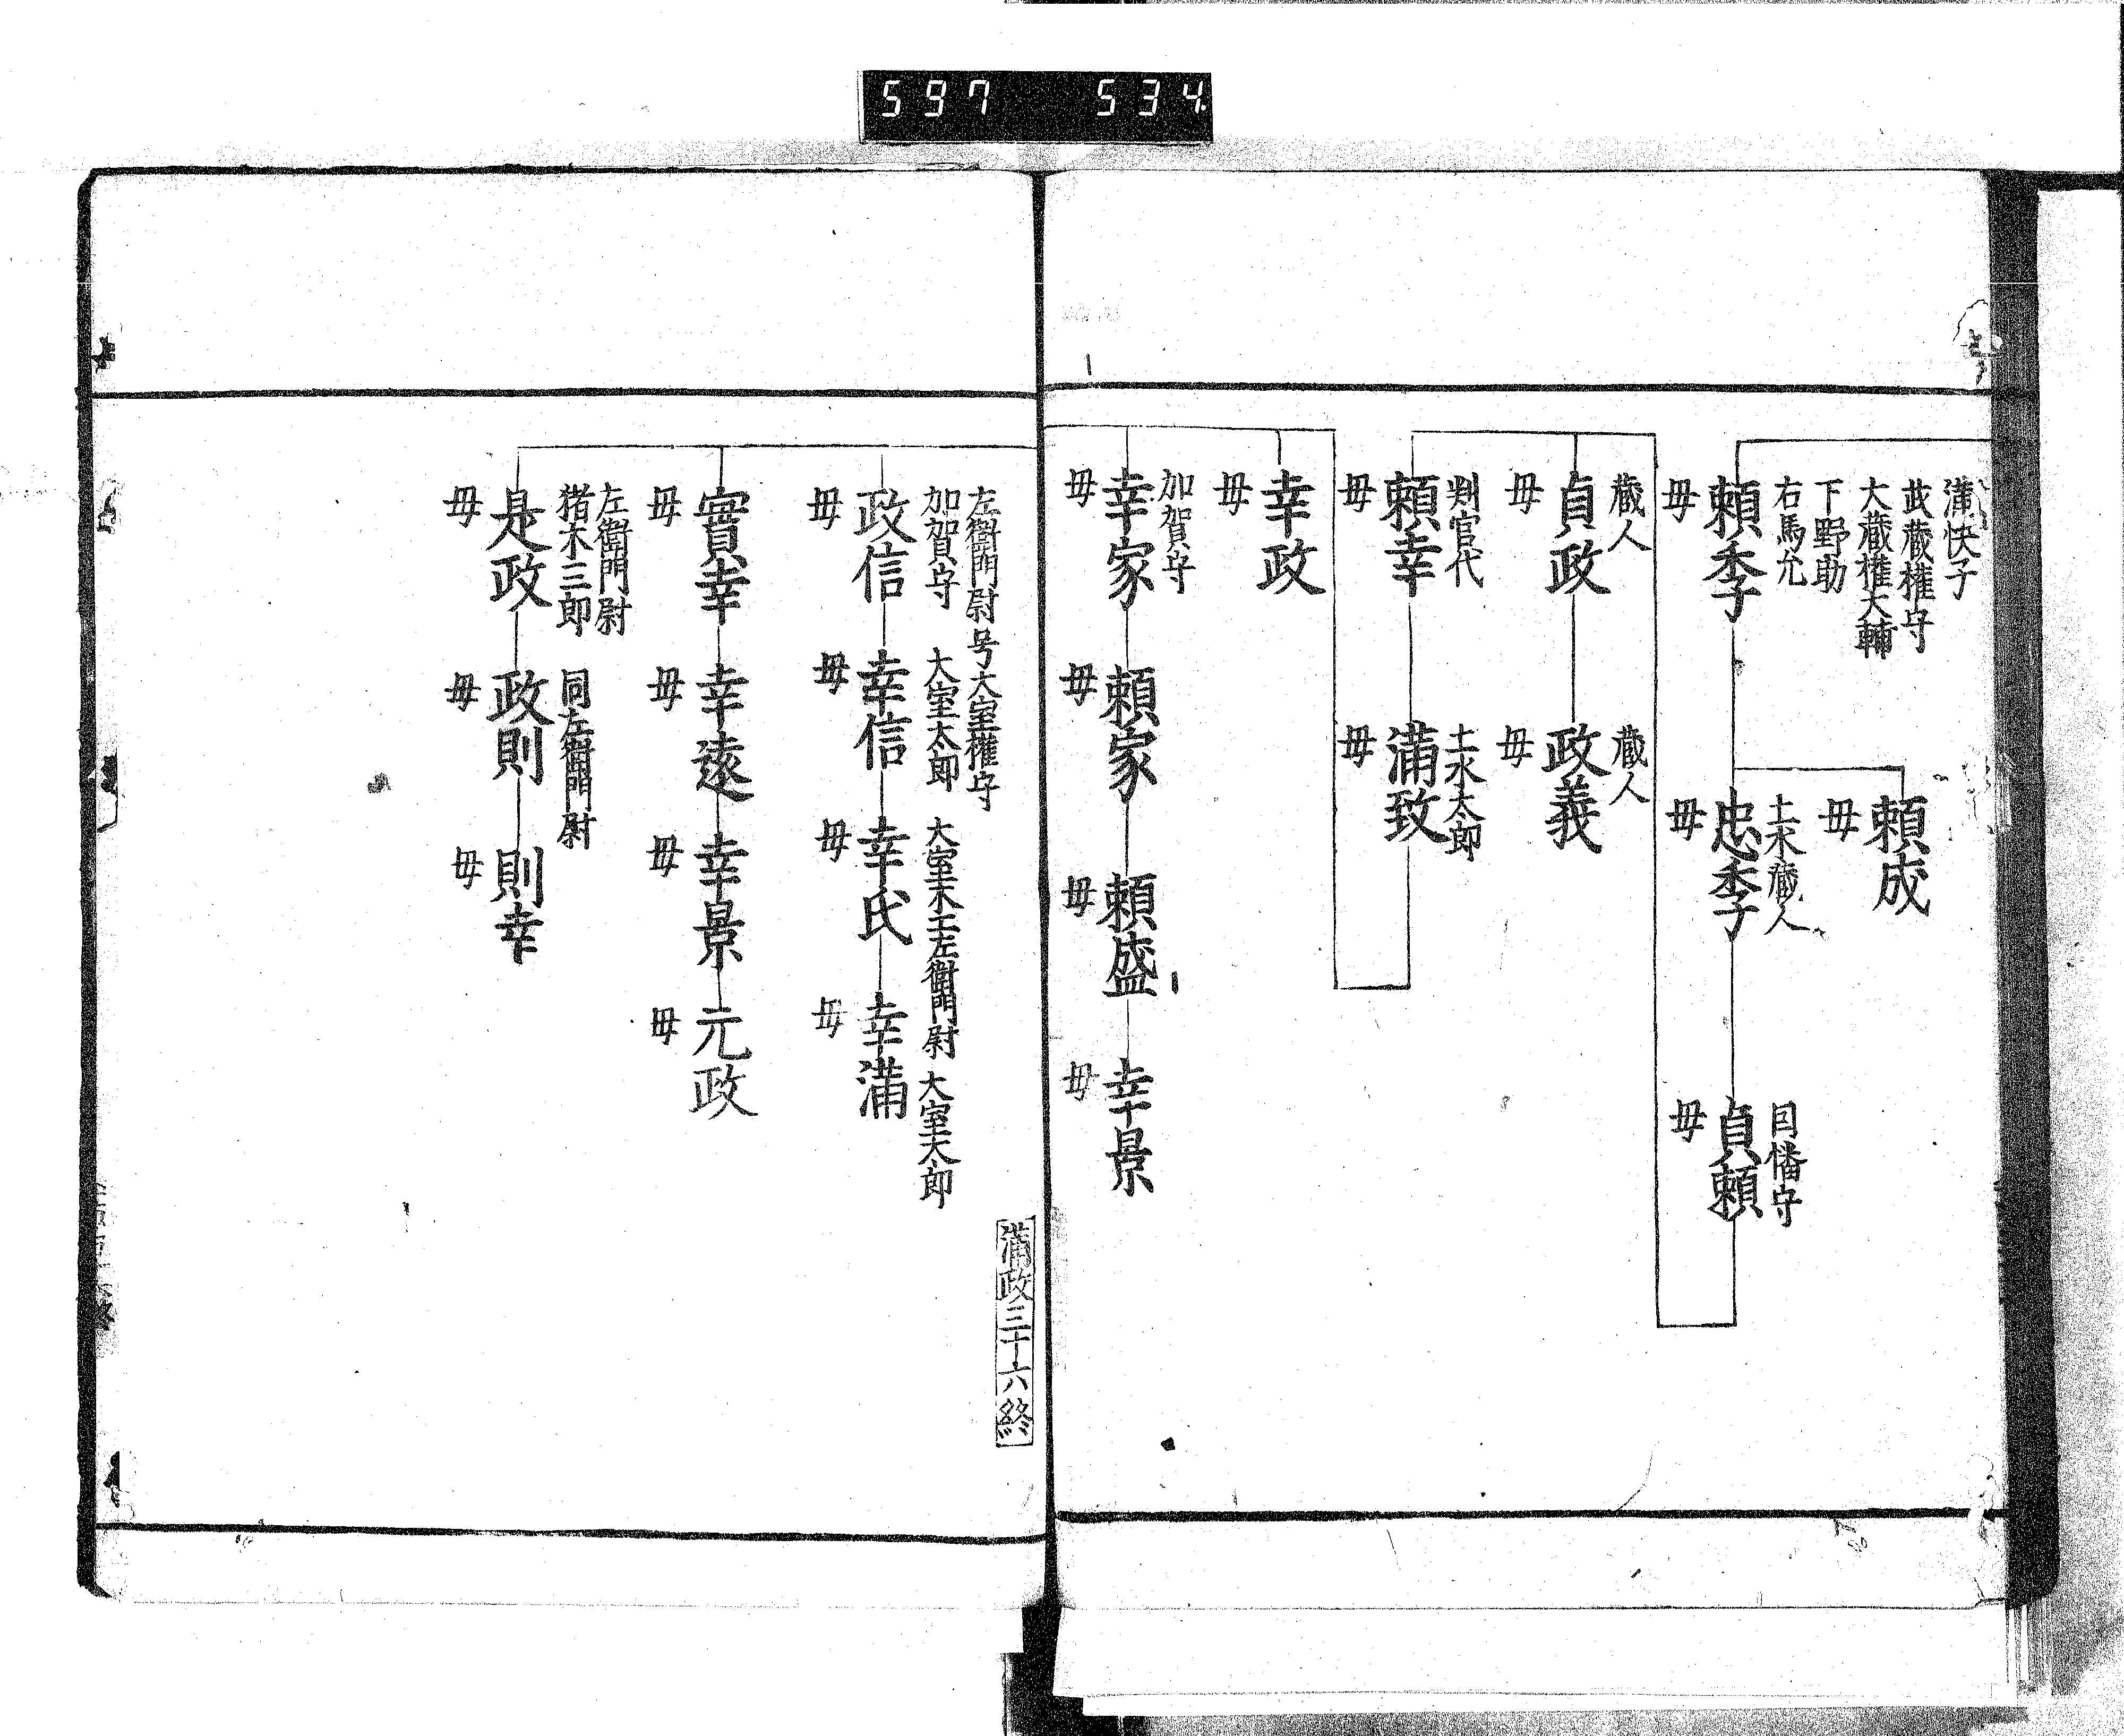 597 534
満快子
武蔵権守
大蔵権大輔
下野助
右馬允
頼季
母
頼成
母
土木蔵人
忠季
母
因幡守
貞頼
母
蔵人
貞政
母
蔵人
政義
母
判官代
頼幸
母
土水太郎
満致
母
幸政
母
加賀守
幸家
母
頼家
母
頼盛
母
幸景
母
満政三十六終
左衛門尉号大室権守
加賀守
政信
母
大室太郎
幸信
母
大室木工左衛門尉
幸氏
母
大室太郎
幸満
母
實幸
母
幸遠
母
幸景
母
元政
母
左衛門尉
猪木三郎
是政
母
同左衛門尉
政則
母
則幸
母